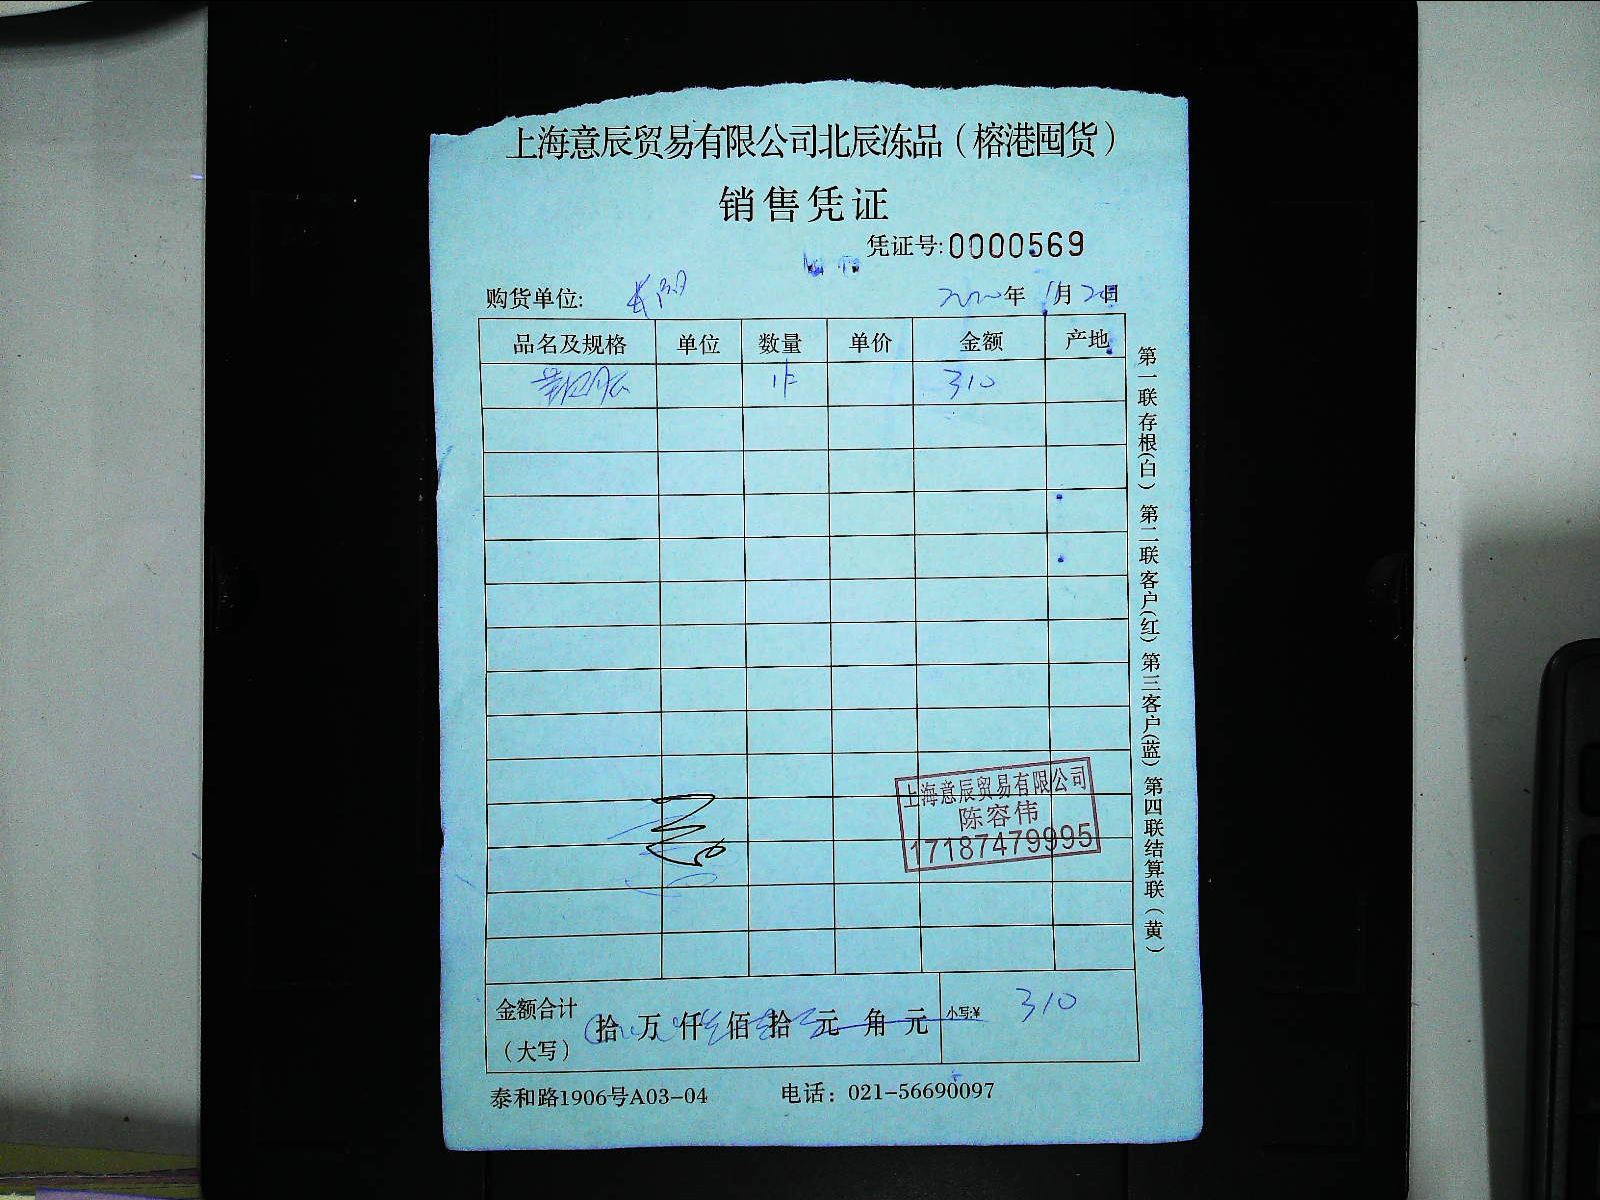 上海意辰贸易有限公司北辰冻品（榕港囤货）
销售凭证
凭证号:0000569
购货单位: 年 11月 日
品名及规格 单位 数量 单价 金额 产地
1件 310
第一联存根(白) 第二联客户(红) 第三客户(蓝) 第四联结算联(黄)
上海意辰贸易有限公司
陈容伟
17187479995
金额合计
（大写）
拾 万 仟 佰 拾 元 角 元 小写:¥ 310
泰和路1906号A03-04 电话：021-56690097